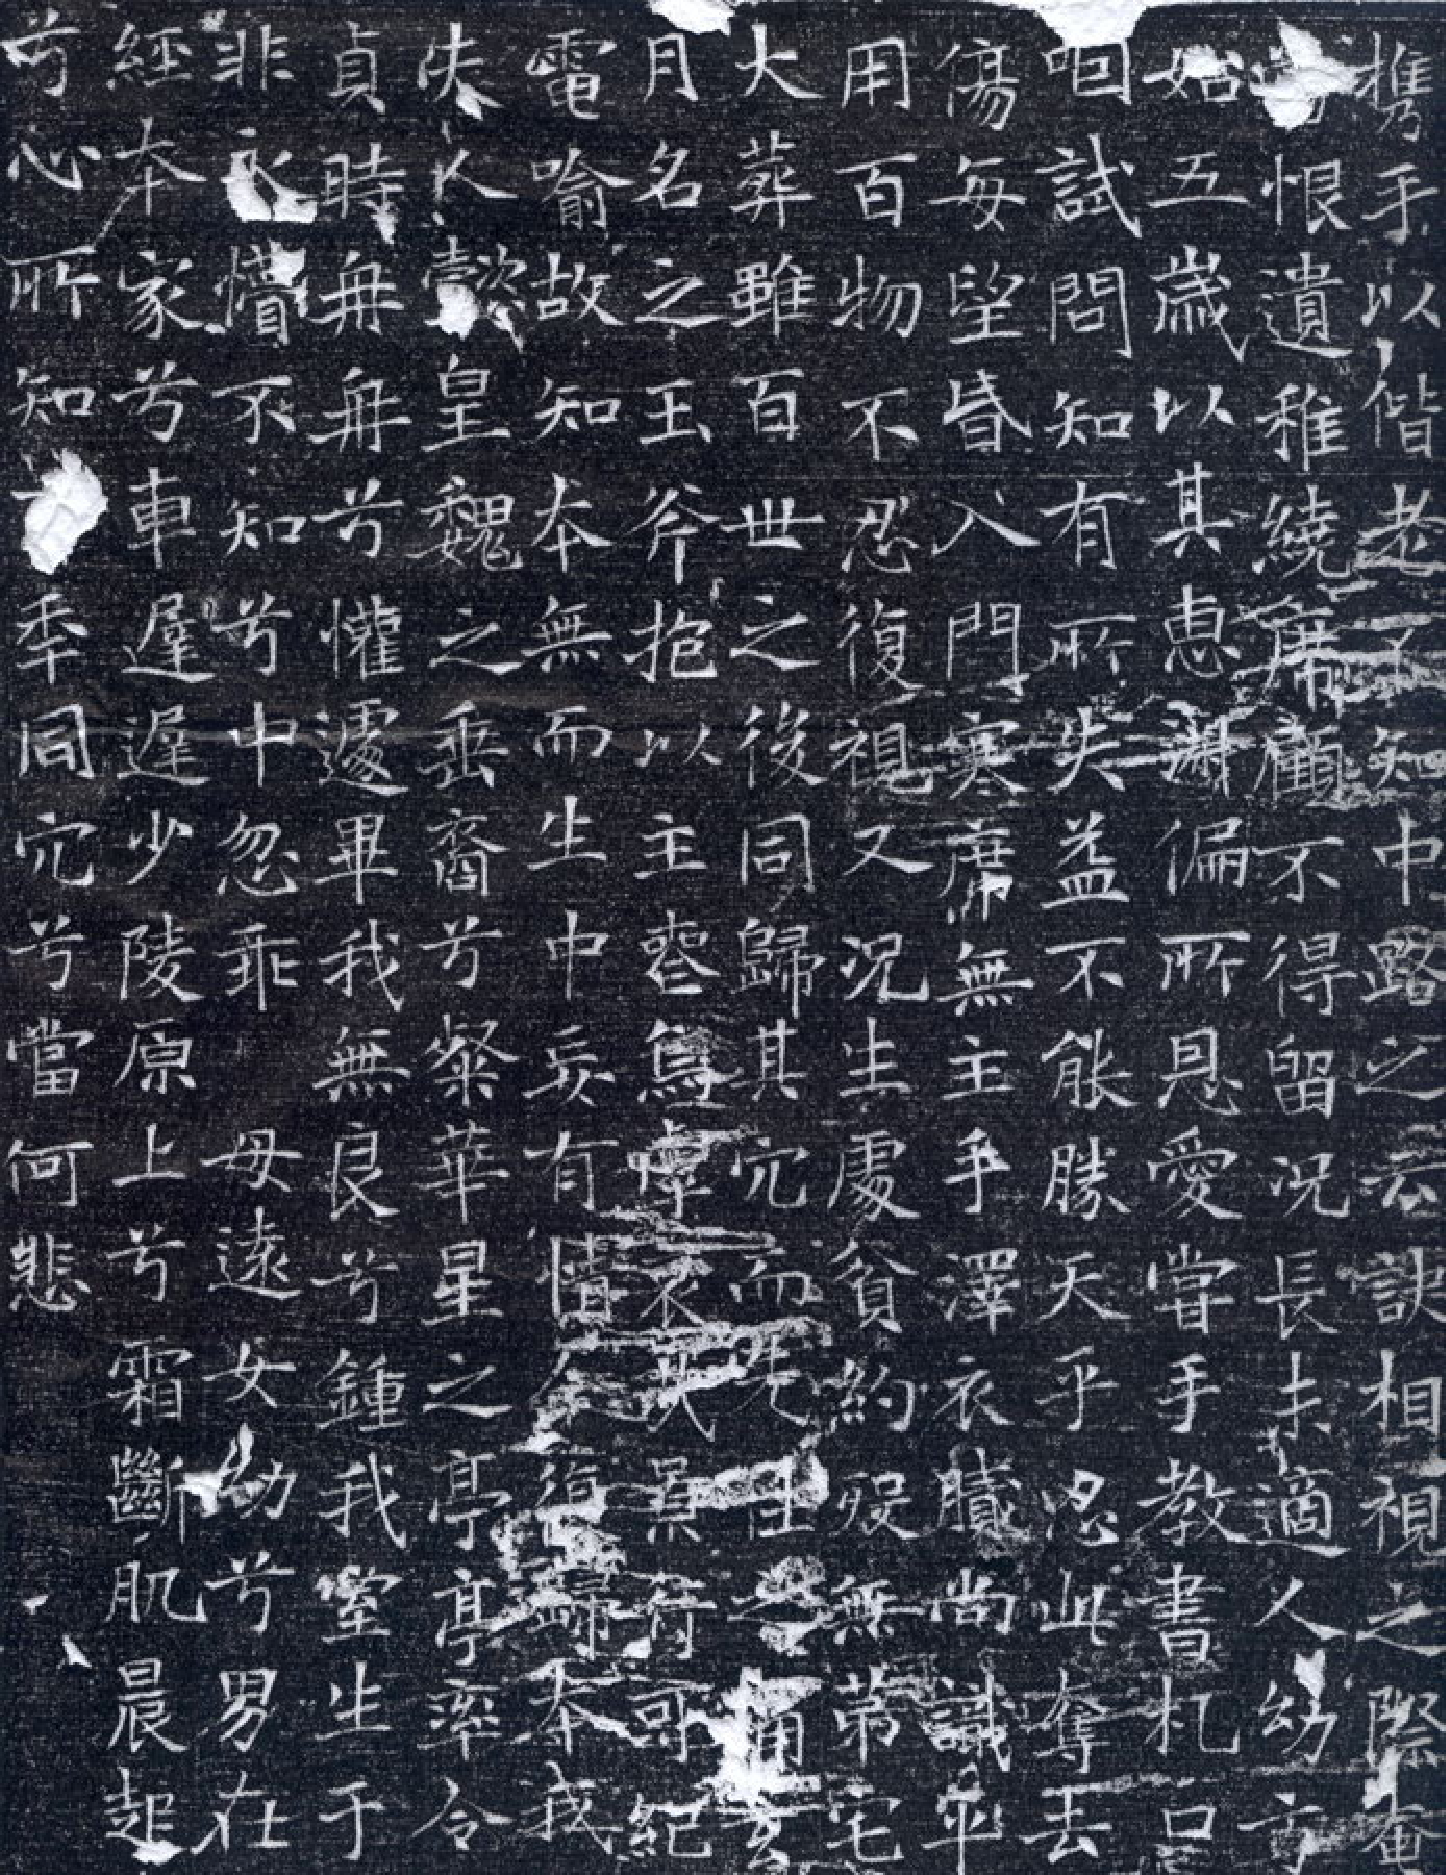 携手以偕老不知中路之云訣相視之際奄
恨遺稚繞席顧不得留况長未適人幼方
始五歲以其惠淑偏所恩愛嘗手教書札口
呾試問知有所失益不能勝天乎忍此奪去
傷每望昏入門寒席無主手澤衣膩尚識平
用百物不忍復視又况生處貧約歿無第宅
大葬雖百世之後同歸其穴而先
月名之玉斧抱以主喪焉嗚哀哉景行可紀
電喻故知本無而生中妄有情今復歸本我
佚人懿皇魏之垂裔兮粲華星之亭亭率令
貞時冉冉兮懽遽畢我無良兮鍾我室生于
非永懵不知兮中忽乖母遠女幼兮男在
經本家兮車遲遲少陵原上兮霜斷肌晨起
兮心所知秊同穴兮當何悲